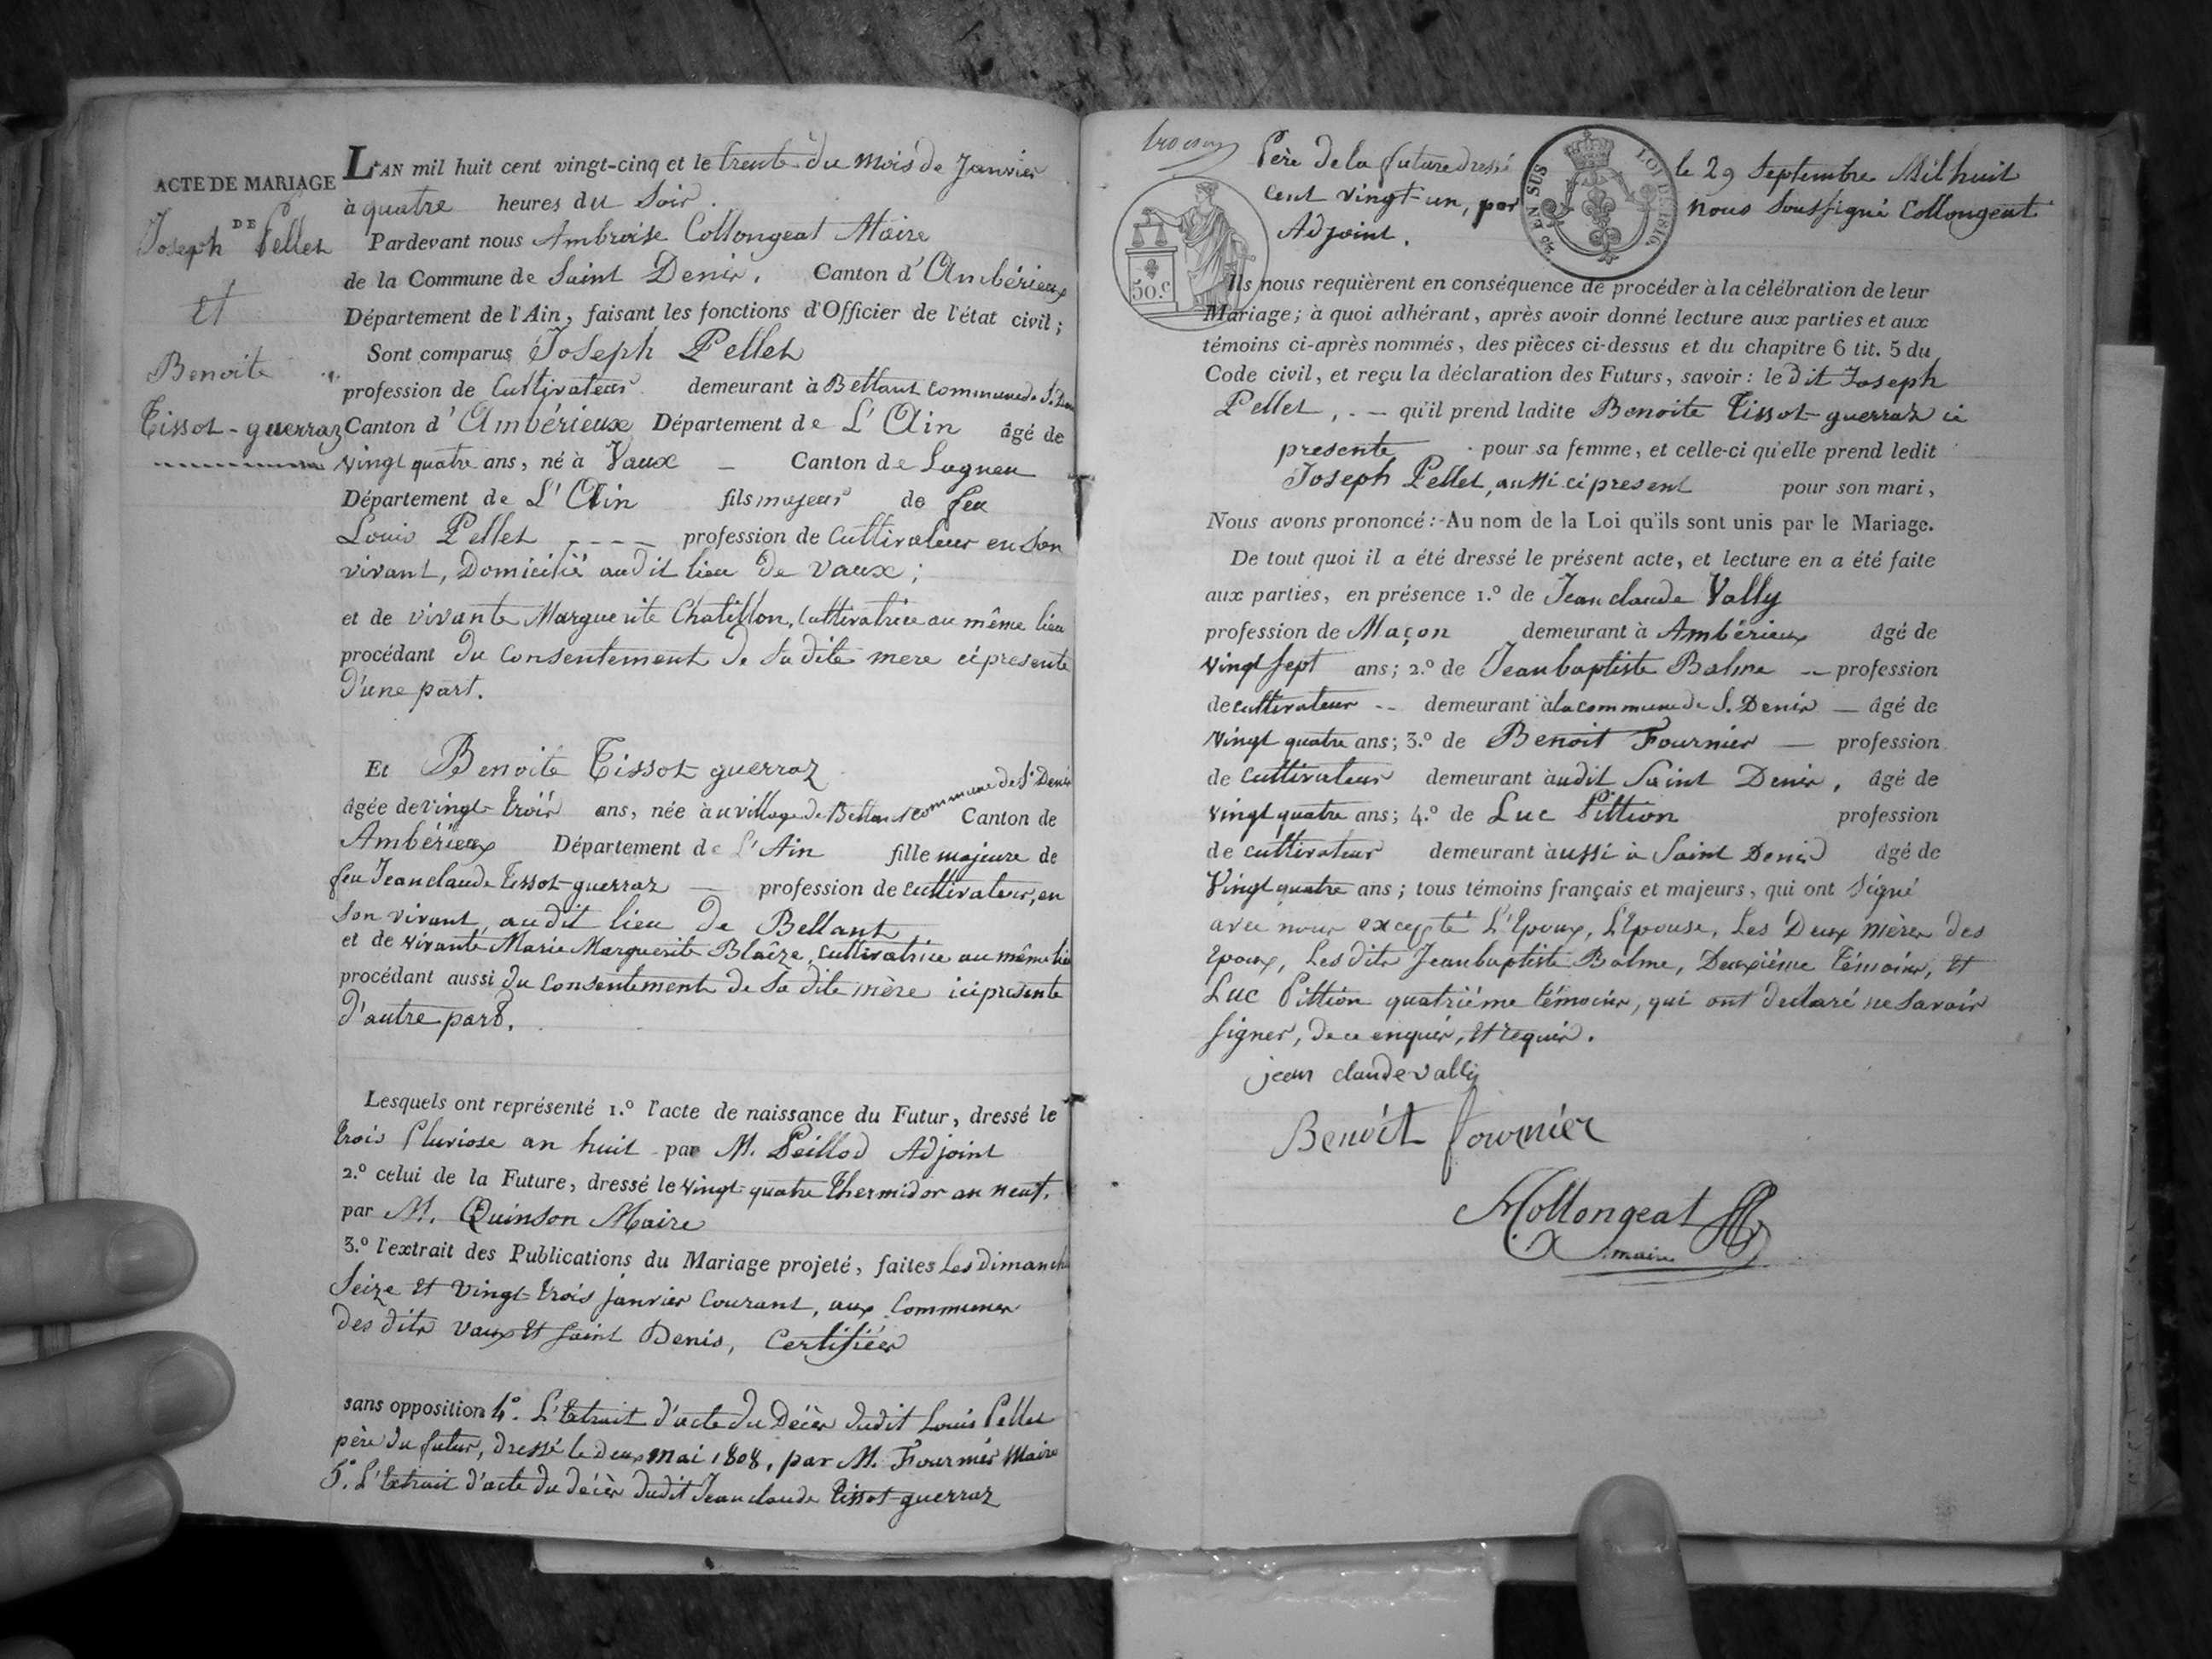 ACTE DE MARIAGE
DE
Joseph Pellet
et
Benoite
Tissot-guerraz
L'AN mil huit cent vingt-cinq et le trente du mois de Janvier
à quatre heures du Soir.
Pardevant nous Ambroise Collongeat Maire
de la Commune de Saint Denis, Canton d'Ambérieux
Département de l'Ain, faisant les fonctions d'Officier de l'état civil;
Sont comparus Joseph Pellet
profession de Cultivateur demeurant à Bettant Commune de S. Denis
Canton d'Ambérieux Département de L'Ain âgé de
vingt quatre ans, né à Vaux — Canton de Lagneu
Département de L'Ain fils majeur de feu
Louis Pellet - - - - profession de Cultivateur en Son
vivant, Domicilié audit lieu de Vaux;
et de vivante Marguerite Chatillon, Cultivatrice au même lieu
procédant du Consentement de Sa dite mere ci présente
d'une part.
Et Benoite Tissot guerraz
âgée de vingt-trois ans, née à u village de Bettant commune de St Denis Canton de
Ambérieux Département de L'Ain fille majeure de
feu Jean claude tissot-guerraz — profession de Cultivateur, en
Son vivant, audit lieu de Bettant
et de vivante Marie Marguerite Blaize, Cultivatrice au même lieu
procédant aussi du Consentement de Sa dite mère ici présente
d'autre part.
Lesquels ont représenté 1.º l'acte de naissance du Futur, dressé le
trois Pluviose an huit par M. Peillod Adjoint
2.º celui de la Future, dressé le vingt-quatre thermidor an neuf,
par M. Quinson Maire
3.º l'extrait des Publications du Mariage projeté, faites Les dimanche
Seize et Vingt-trois janvier Courant, aux Communes
des dits Vaux et Saint Denis, Certifiées
sans opposition 4º. L'Extrait d'acte du Décès dudit Louis Pellet
père du futur, dressé le deux mai 1808, par M. Fournier Maire
5º. L'Extrait d'acte du décès dudit Jean claude tissot-guerraz
Père de la future dressé le 29 Septembre Mil huit
cent vingt-un, par nous Soussigné Collongeat
Adjoint.
50.c
LOI DE 1816.
EN SUS
Ils nous requièrent en conséquence de procéder à la célébration de leur
Mariage; à quoi adhérant, après avoir donné lecture aux parties et aux
témoins ci-après nommés, des pièces ci-dessus et du chapitre 6 tit. 5 du
Code civil, et reçu la déclaration des Futurs, savoir: le dit Joseph
Pellet, - — qu'il prend ladite Benoite Tissot-guerraz ci
presente pour sa femme, et celle-ci qu'elle prend ledit
Joseph Pellet, aussi ci present pour son mari,
Nous avons prononcé: Au nom de la Loi qu'ils sont unis par le Mariage.
De tout quoi il a été dressé le présent acte, et lecture en a été faite
aux parties, en présence 1.º de Jean claude Vally
profession de Maçon demeurant à Ambérieux âgé de
vingt Sept ans; 2.º de Jean baptiste Balme -- profession
de cultivateur -- demeurant à la commune de S. Denis — âgé de
vingt quatre ans; 3.º de Benoit Fournier — profession
de cultivateur demeurant à udit Saint Denis, âgé de
vingt quatre ans; 4.º de Luc Pittion profession
de cultivateur demeurant à ussi à Saint Denis âgé de
Vingt quatre ans; tous témoins français et majeurs, qui ont Signé
avec nous excepté L'Epoux, L'Epouse, Les Deux mères des
Epoux, Les dits Jean baptiste Balme, Deuxième témoins, et
Luc Pittion quatriéme témoins, qui ont declaré ne Savoir
Signer, de ce enquis, et requis.
jean claude vally
Benoit fournier
Collongeat
maire